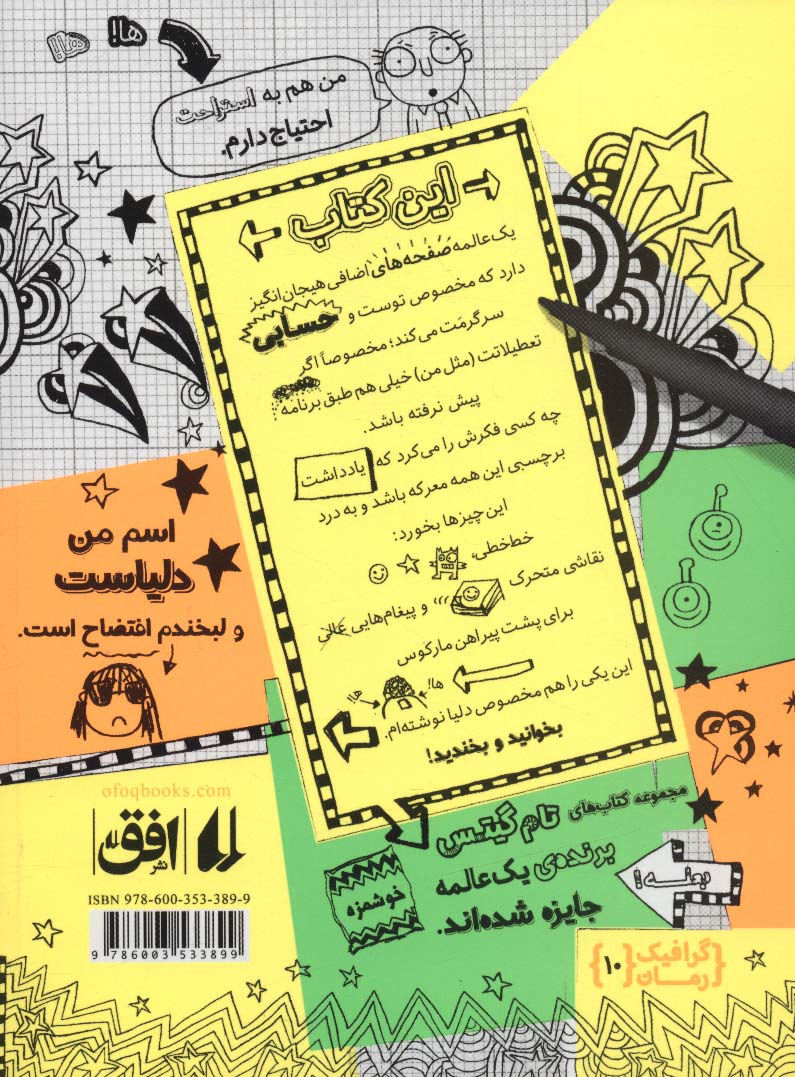 ها! ها!
من هم به استراحت
احتیاج دارم.
این کتاب
یک‌عالمه صفحه‌های اضافی هیجان‌انگیز
دارد که مخصوص توست و حسابی
سرگرمت می‌کند؛ مخصوصاً اگر
تعطیلاتت (مثل من) خیلی هم طبق برنامه
پیش نرفته باشد.
چه کسی فکرش را می‌کرد که یادداشت
برچسبی این همه معرکه باشد و به درد
این چیزها بخورد:
خط‌خطی،
نقاشی متحرک و پیغام‌هایی عالی
برای پشت پیراهن مارکوس
ها! ها!
این یکی را هم مخصوص دلیا نوشته‌ام.
بخوانید و بخندید!
اسم من
دلیاست
و لبخندم افتضاح است.
مجموعه کتاب‌های تام گیتس
برنده‌ی یک‌عالمه
جایزه شده‌اند.
خوشمزه
بعله!
ofoqbooks.com
نشر افق
ISBN 978-600-353-389-9
9 786003 533899
گرافیک
رمان
{۱۰}